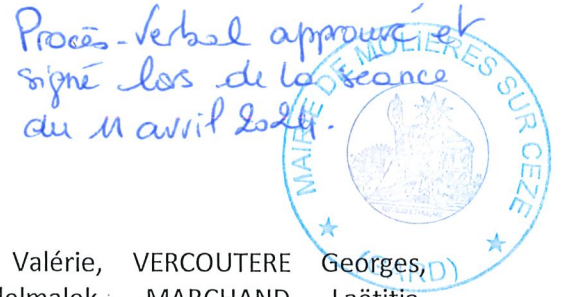 Procès-Verbal approuvé et
signé lors de la séance
du 11 avril 2024.
MAIRIE DE MOLIERES SUR CEZE
(GARD)
Valérie, VERCOUTERE Georges,
MARCHAND Laëtitia